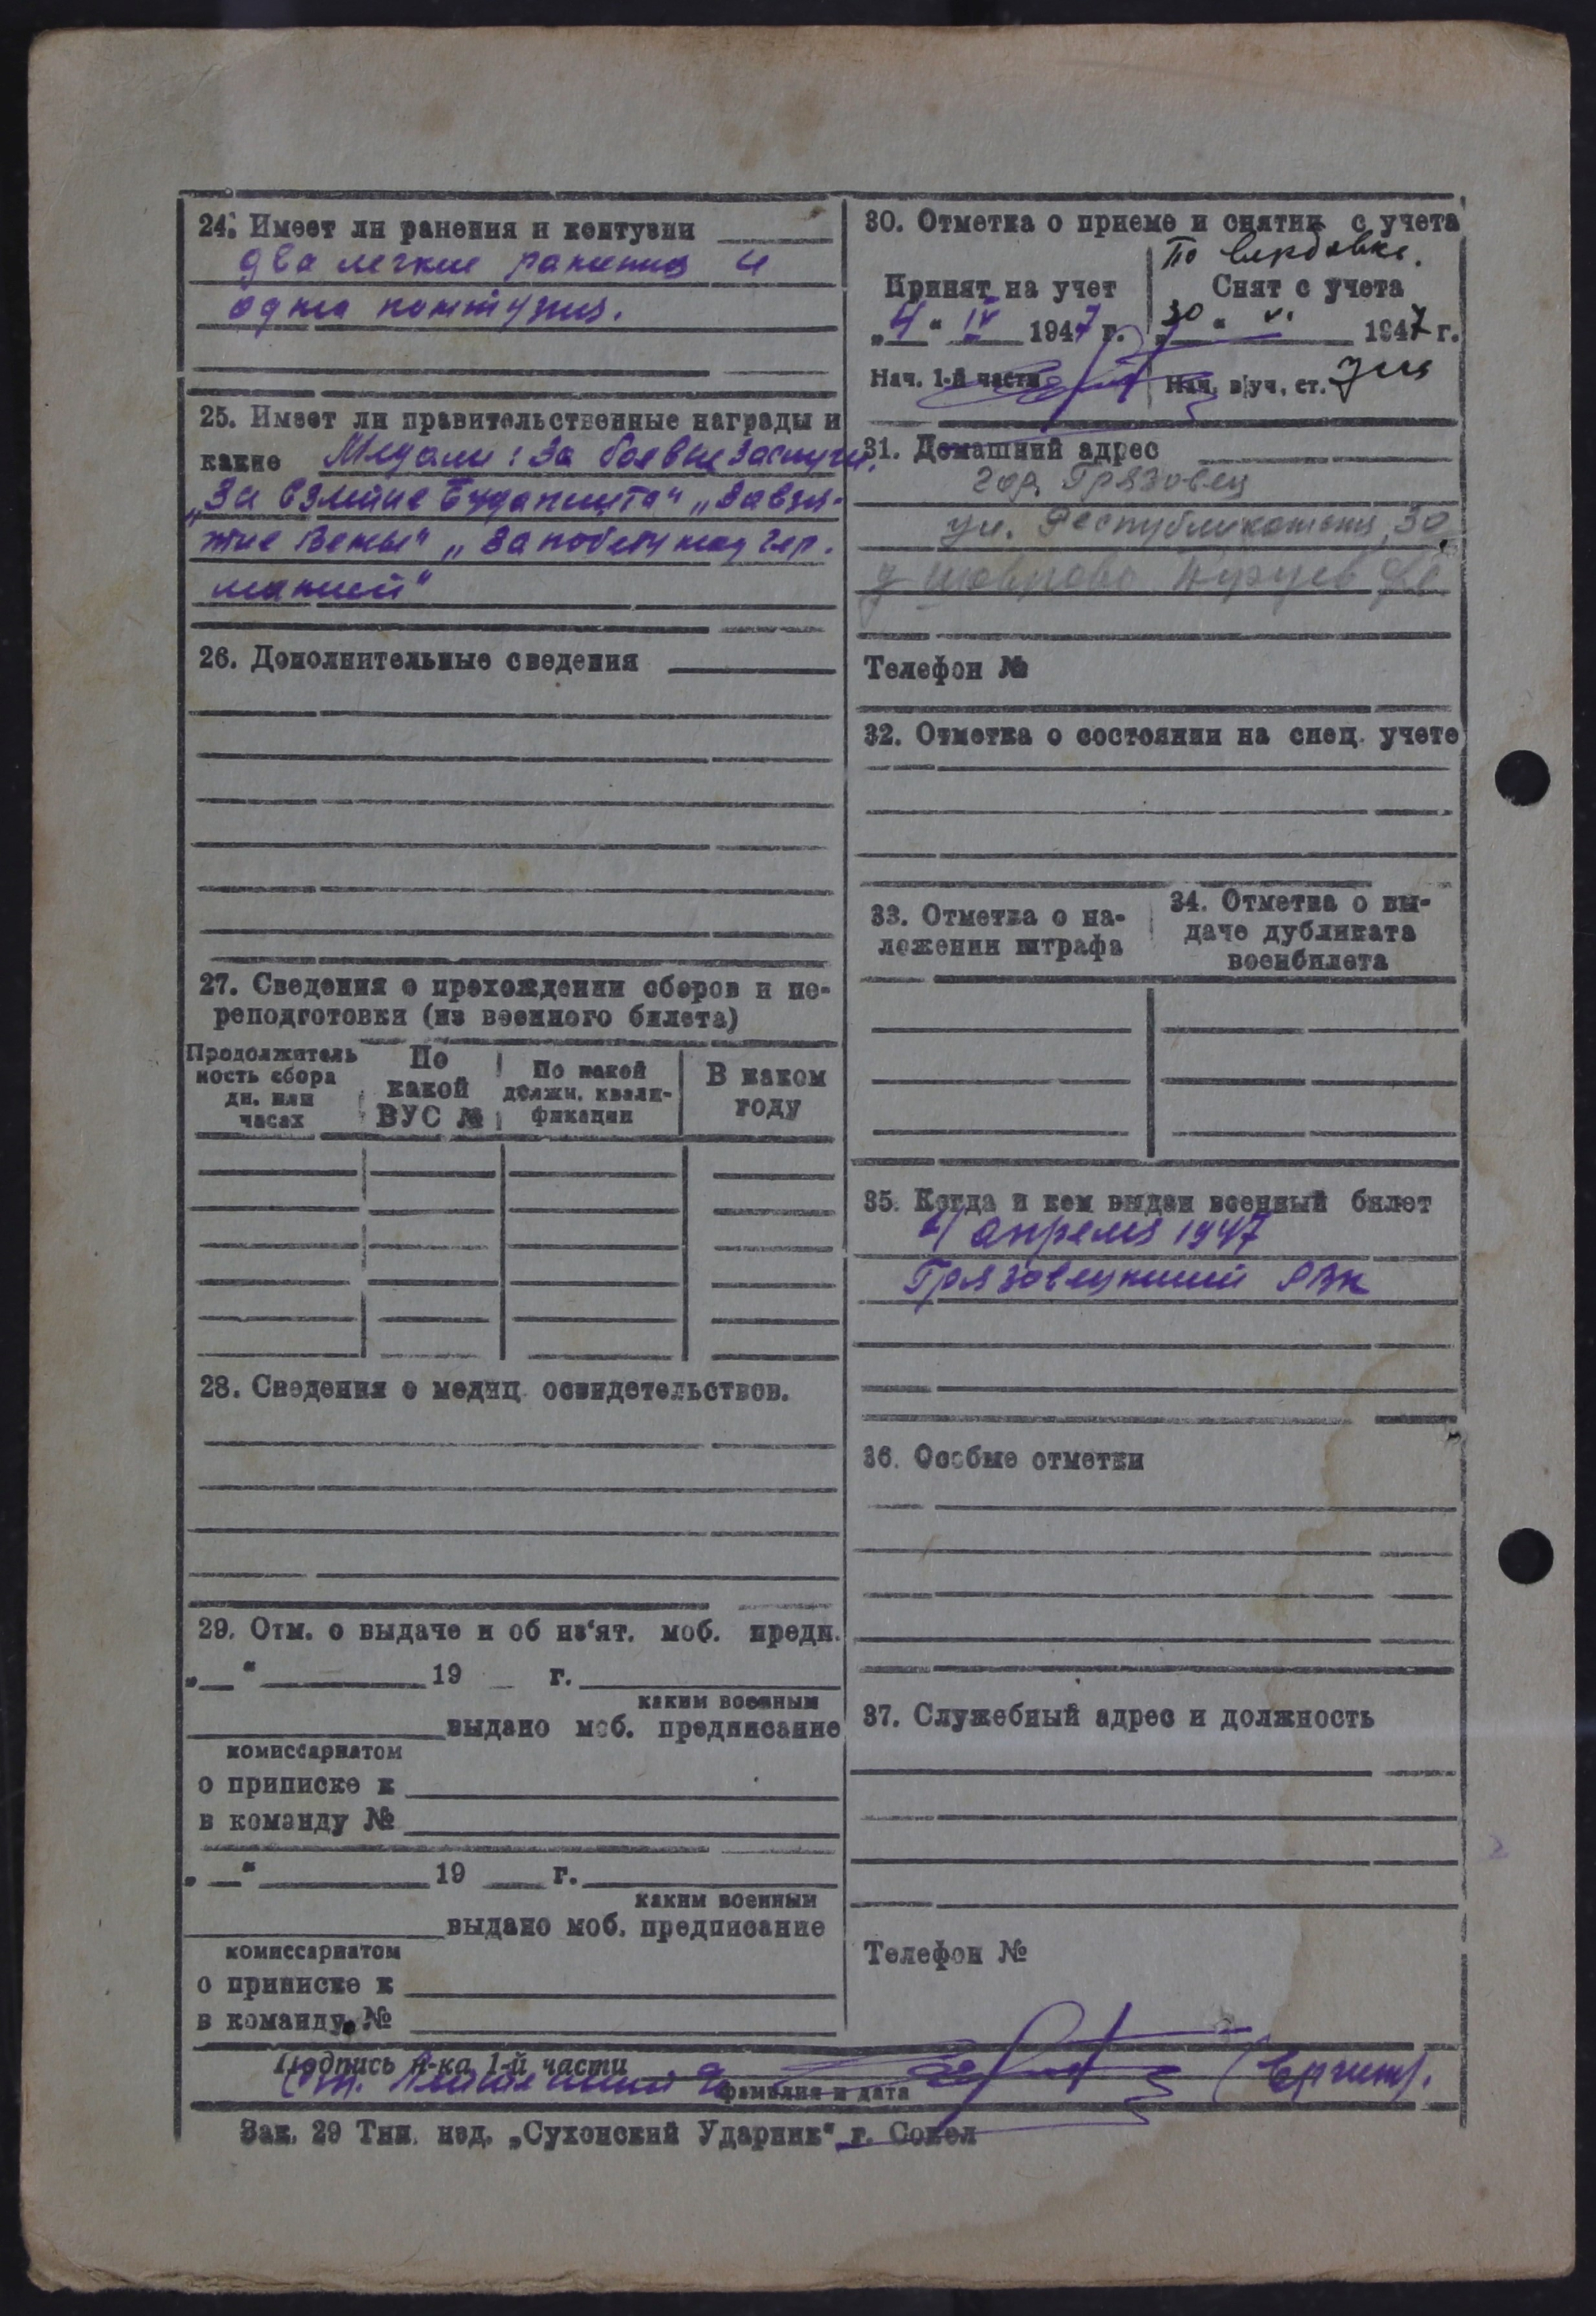 24. Имеет ли ранения и контузии
два легкие ранения и
одна контузия.
25. Имеет ли правительственные награды и
какие Медали: За боевые заслуги,
„За взятие Будапешта" „За взя-
тие Вены" „За победу над гер.
манией"
26. Дополнительные сведения
27. Сведения о прохождении сборов и пе-
реподготовки (из военного билета)
Продолжитель
ность сбора
дн. или
часах
По
какой
ВУС №
По какой
должн. квали-
фикации
В каком
году
28. Сведения о медиц. освидетельствов.
29. Отм. о выдаче и об из'ят. моб. предп.
„ " 19 г.
каким военным
выдано моб. предписание
комиссариатом
о приписке к
в команду №
„ " 19 г.
каким военным
выдано моб. предписание
комиссариатом
о приписке к
в команду №
30. Отметка о приеме и снятии с учета
По вербовке.
Принят на учет
„4" IV 1947 г.
Нач. 1-й части
Снят с учета
„30" VI 1947 г.
Нач. в/уч. ст.
31. Домашний адрес
гор. Грязовец
ул. Республиканская, 30
32. Отметка о состоянии на спец. учете
Телефон №
33. Отметка о на-
ложении штрафа
34. Отметка о вы-
даче дубликата
военбилета
35. Когда и кем выдан военный билет
4 апреля 1947
Грязовецкий РВК
36. Особые отметки
37. Служебный адрес и должность
Телефон №
Подпись н-ка 1-й части
фамилия и дата
Зак. 29 Тип. изд. „Сухонский Ударник" г. Сокол